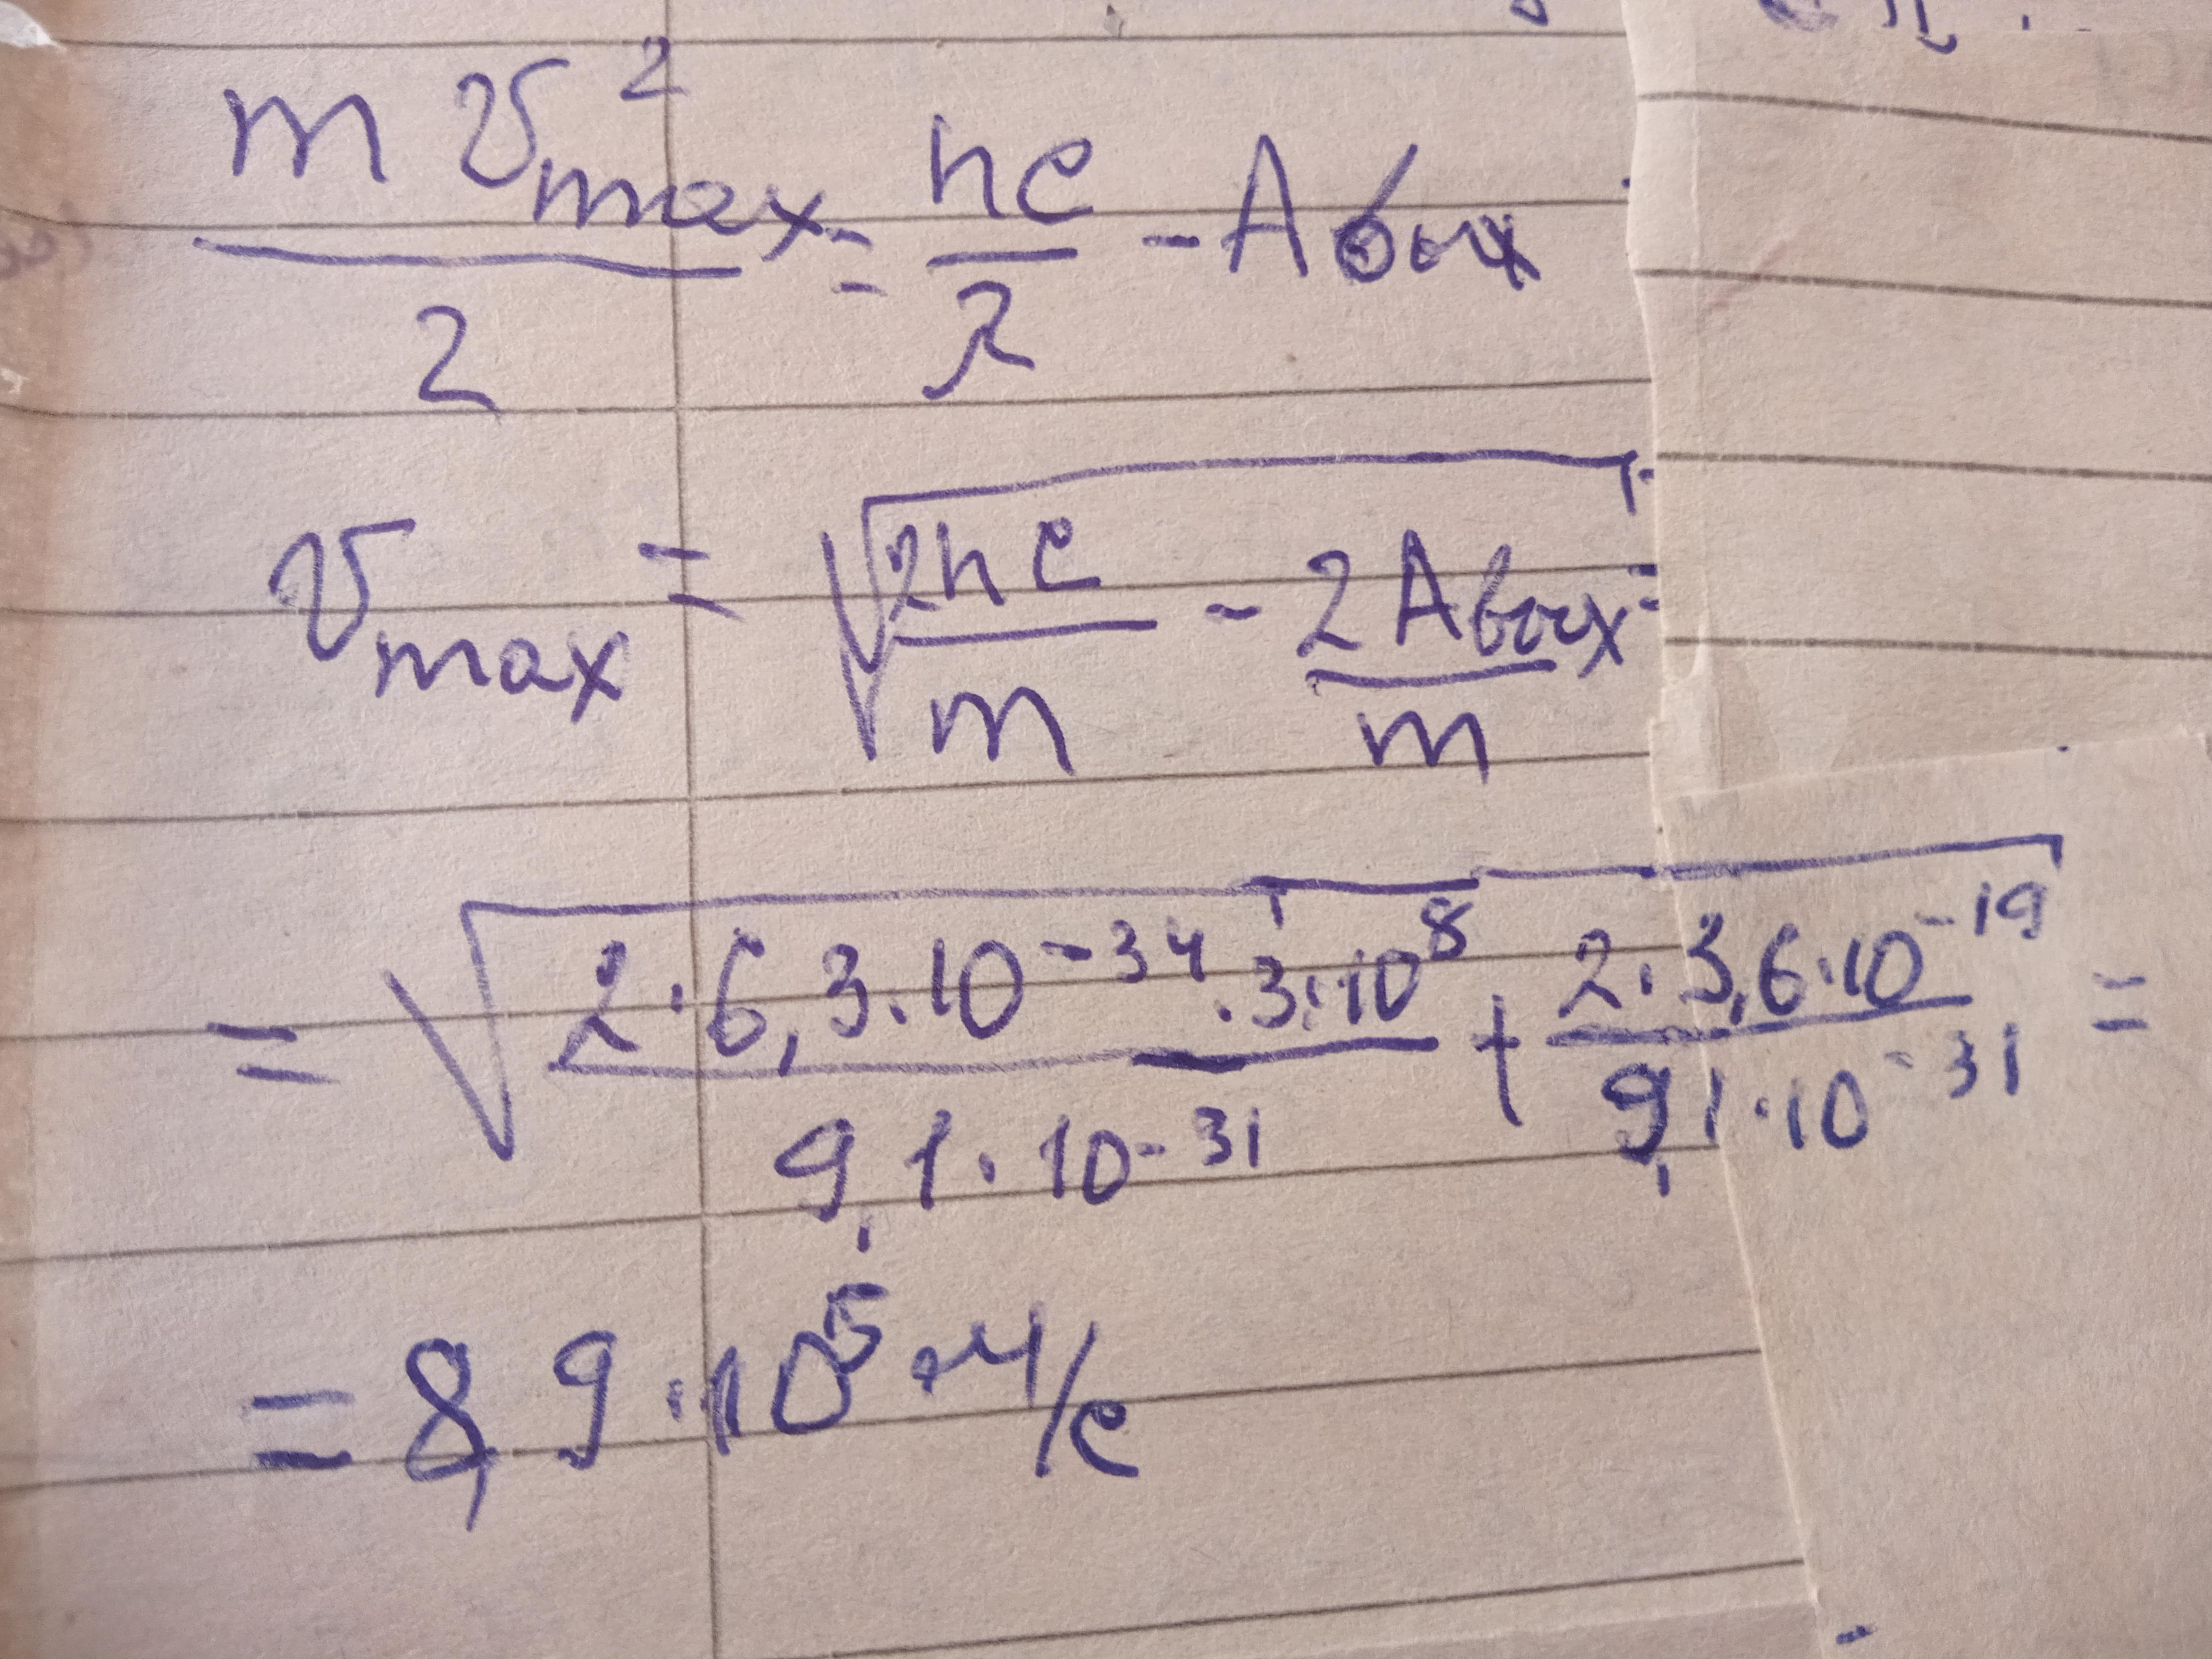 mv²max/2 = hc/λ - Aвых
vmax = √(2hc/m - 2Aвых/m) =
= √(2·6,3·10⁻³⁴·3·10⁸/9,1·10⁻³¹ + 2·3,6·10⁻¹⁹/9,1·10⁻³¹) =
= 8,9·10⁵ м/с